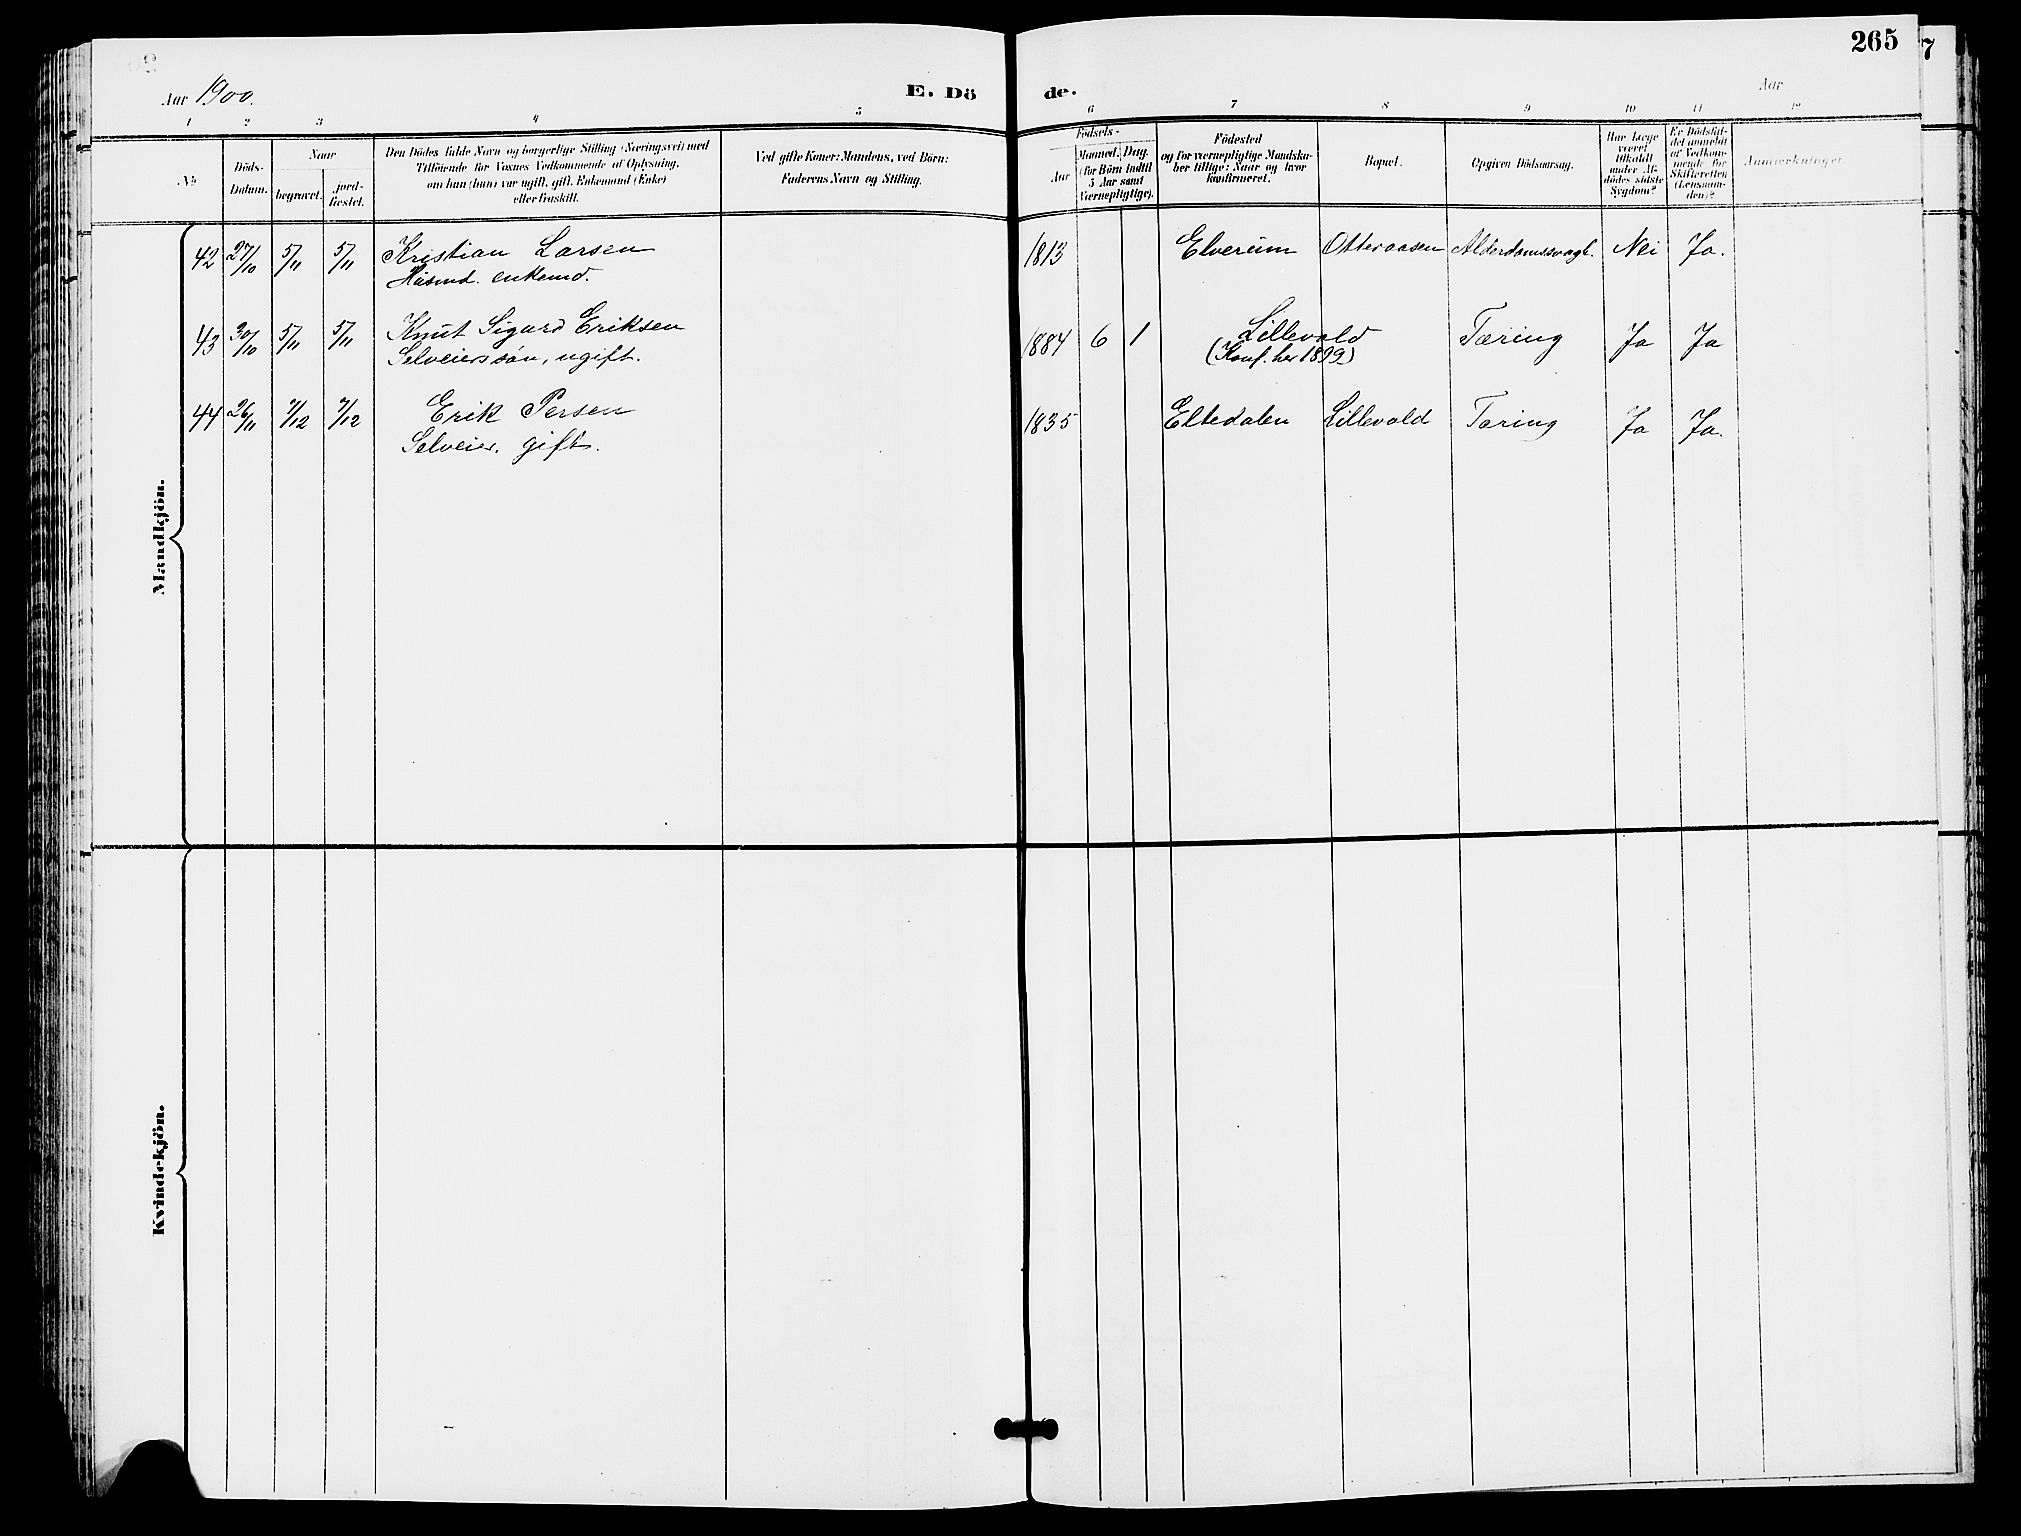 265
7
Aar 1900.
E. Dö de.
Aar
1 2 3 4 5 6 7 8 9 10 11 12
No
Döds-
Datum.
Naar
begravet.
jord-
fæstet.
Den Dödes fulde Navn og borgerlige Stilling (Næringsvei) med
Tilföiende for Voxnes Vedkommende af Oplysning,
om han (hun) var ugift, gift, Enkemand (Enke)
eller fraskilt.
Ved gifte Koner: Mandens, ved Börn:
Faderens Navn og Stilling.
Födsels-
Aar
Maaned. Dag.
(for Börn indtil
5 Aar samt
Værnepligtige).
Födested
og for værnepligtige Mandska-
ber tillige: Naar og hvor
konfirmeret.
Bopæl.
Opgiven Dödsaarsag.
Har Læge
været
tilkaldt
under Af-
dödes sidste
Sygdom?
Er Dödsfal-
det anmeldt
af Vedkom-
mende for
Skifteretten
(Lensman-
den)?
Anmærkninger
Mandkjön.
42 27/10 5/11 5/11 Kristian Larsen 1813 Elverum Otteraasen Alderdomssvagh. Nei Ja.
Husmd. enkemd.
43 30/10 5/11 5/11 Knut Sigurd Eriksen 1884 6 1 Lillevold Tæring Ja Ja
Selveiers sön, ugift. (Konf. her 1899)
44 26/11 7/12 7/12 Erik Persen 1835 Eltedalen Lillevold Tæring Ja Ja.
Selveier. gift.
Kvindekjön.